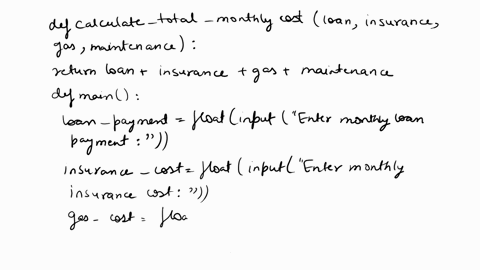 def calculate_total_monthly cost (loan, insurance,
gas, maintenance):
return loan + insurance + gas + maintenance
def main():
loan_payment = float(input("Enter monthly loan
payment:"))
insurance_cost = float(input("Enter monthly
insurance cost:"))
gas_cost = floa